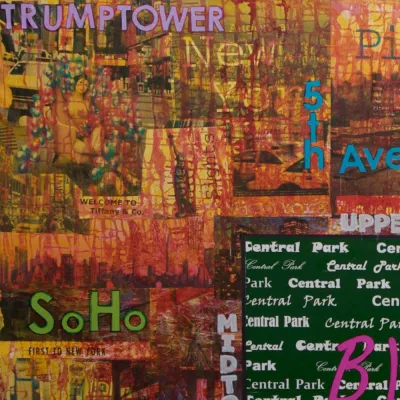 TRUMPTOWER
New
Pi
Y
5th
Ave
WELCOME TO
Tiffany & Co.
UPPE
Central Park Cen
Central Park Central Park
Park Central Park
Central Park Cen
Central Park Central Park
Central Central P
Park Central Park
Central Park Central P
SoHo
MIDTO
FIRST TO NEW YORK
B